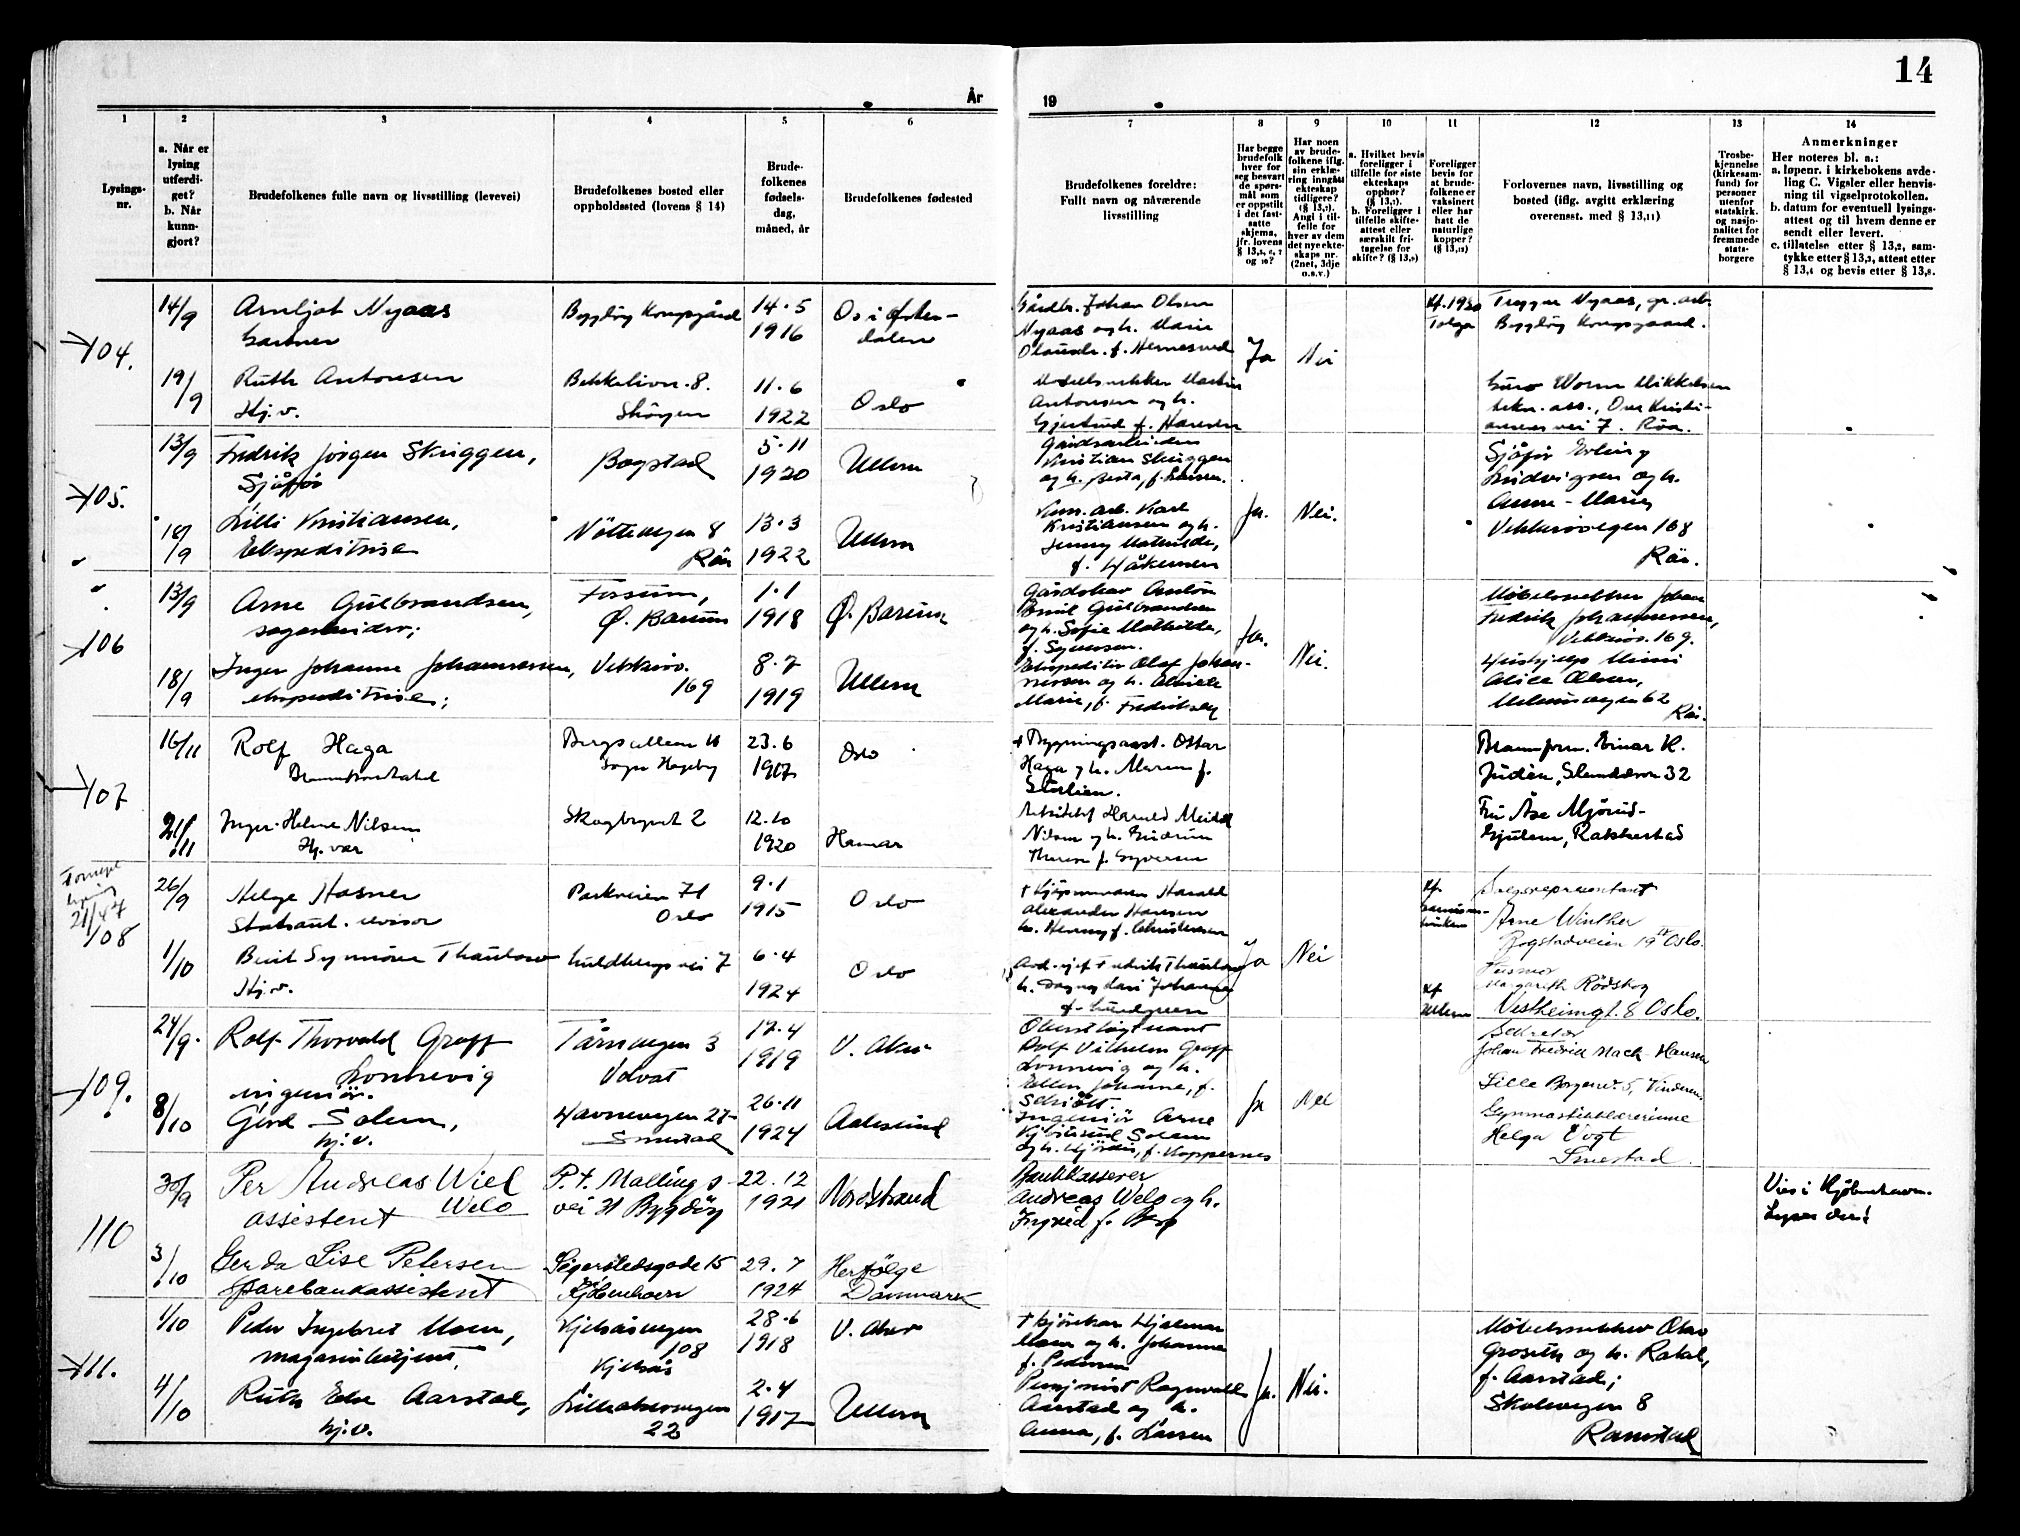 14
År
19
1
2
3
4
5
6
7
8
9
10
11
12
13
14
Lysings-
nr.
a. Når er
lysing
utferdi-
get?
b. Når
kunn-
gjort?
Brudefolkenes fulle navn og livsstilling (levevei)
Brudefolkenes bosted eller
oppholdssted (lovens § 14)
Brude-
folkenes
fødsels-
dag,
måned, år
Brudefolkenes fødested
Brudefolkenes foreldre:
Fullt navn og nåværende
livsstilling
Har begge
brudefolk
hver for
seg besvart
de spørs-
mål som
er oppstilt
i det fast-
satte
skjema,
jfr. lovens
og 10?
Har noen
av brude-
folkene iflg.
sin erklæ-
ring inngått
ekteskap
tidligere?
(§ 13,7).
Angi i til-
felle for
hver av dem
det nye ekte-
skaps nr.
(2net, 3dje
o.s.v.)
a. Hvilket bevis
foreligger i
tilfelle for siste
ekteskaps
opphør?
(§ 13,7).
b. Foreligger i
tilfelle skifte-
attest eller
særskilt fri-
tagelse for
skifte? (§ 13,9)
Foreligger
bevis for
at brude-
folkene er
vaksinert
eller har
hatt de
naturlige
kopper?
Forlovernes navn, livsstilling og
bosted (iflg. avgitt erklæring
overensst. med § 13,11)
Trosbe-
kjennelse
(kirkesam-
fund) for
personer
utenfor
statskirk.
og nasjo-
nalitet for
fremmede
stats-
borgere
Anmerkninger
Her noteres bl. a.:
a. løpenr. i kirkebokens avde-
ling C. Vigsler eller henvis-
ning til vigselprotokollen.
b. datum for eventuell lysings-
attest og til hvem denne er
sendt eller levert.
c. tillatelse etter § 13,2, sam-
tykke etter § 13,3, attest etter
§ 13,4 og bevis etter § 13,8.
104.
14/9
Arnljot Nyaas
Gartner
Bygdöy Kongsgård
14.5
1916
Os i Øster-
dalen
Gårdbr. Johan Olsen
Nyaas og h. Marie
Ja
Nei
Kf. 1930
Tolga
Trygve Nyaas, gr. arb.
Bygdöy Kongsgaard.
19/9
Ruth Antonsen
Hj.v.
Bekkelivn. 8.
Skögen
11.6
1922
Oslo
Antonsen og h.
Gjertrud f. Hansen
Guro Worm Mikkelsen
tekn. ass., Ove Kristi-
ansens vei 7. Röa.
105.
13/9
Fredrik Jörgen Skuggen,
Sjåför
Bogstad
5.11
1920
Ullern
Gårdsarbeider
Kristian Skuggen
og h. Berta, f. Larsen.
Ja.
Nei.
Sjåför Erling
Ludvigsen og h.
Anne-Marie
Vekkerövegen 168
Röa.
18/9
Lilli Kristiansen,
Ekspeditrise
Nöttevegen 8
Röa
13.3
1922
Ullern
Karl
Kristiansen og h.
Jenny Mathilde,
f. Håkensen
106
13/9
Arne Gulbrandsen,
sagarbeider;
Fossum,
Ø. Bærum
1.1
1918
Ø. Bærum
Gårdsbr. Anton
Emil Gulbrandsen
og h. Sofie Mathilde,
f. Symensen.
Ja.
Nei.
Möbelsnekker Johan
Fredrik Johannessen,
Vekkerö. 169.
18/9
Inger Johanne Johannessen,
ekspeditrise;
Vekkerö.
169
8.7
1919
Ullern
Ekspeditör Olaf Johan-
nessen og h.
Marie, f. Fredriksen
Hushjelp Mimi
Alice Olsen,
Melumvegen 62
Röa.
107
16/11
Rolf Haga
Brannkonstabel
Bergsalleen 11
23.6
1917
Oslo
† Bygningsass. Oskar
Haga og h. Maren f.
Branform. Einar K.
Juden, 32
21/11
Inger-Helene Nilsen
Hj. vær
Skogbrynet 2
12.10
1920
Hamar
Arkitekt Harald Meidel
Nilsen og h. Gudrun
Therese f. Syversen
Fru Åse Mjörud-
Gjulem, Rakkestad
Fornyet
lysing
108
26/9
Helge Hasner
Statsaut. revisor
Parkveien 71
Oslo
9.1
1915
Oslo
Alexander Hansen
h. Henny f. Christensen
Ja
Nei
Kf.
Salgsrepresentant
Arne Winther
Bogstadveien 19 IV Oslo.
1/10
Berit Synnöve Thaulow
Hj.v.
Guldbergs vei 7
6.4
1924
Oslo
Fredrik Thaulow
h. Dagny Johanne
f. Lundgreen
Kf.
Ullern
Margareth Rödskog
Vestheimgt. 8 Oslo.
109.
24/9.
Rolf Thorvald Graff
Lonnevig
ingeniör.
Tårnvegen 3
Volvat
12.4
1919
V. Aker
Oberstlöytnant
Rolf Vilhelm Graff
Lonnevig og h.
Ellen Johanne, f.
Schiött
Ja
Nei
Sekretær
Johan Fredrik Mack Hansen
Lille Borgenv. 5, Vinderen
8/10
Gerd Solem,
hj.v.
Havnevegen 27
Smestad
26.11
1924
Aalesund
Ingeniör Arne
Solem
og h. Hjördis, f. Koppernes
Gymnastikklærerinne
Helga Vogt
Smestad.
110
30/9
Per Andreas Wiel
Welo
assistent
P.t. Mallings
vei 31 Bygdöy
22.12
1921
Nordstrand
Bankkasserer
Andreas Welo og h.
Ingrid f. Berg
Vies i Kjöbenhavn.
Lyses der!
3/10
Gerda Lise Petersen
Sparebankassistent
Sigerstedsgade 15
Kjöbenhavn
29.7
1924
Herfölge
Danmark
111.
4/10
Peder Ingebret Moen,
magasinbetjent,
Kjelsåsvegen
108
Kjelsås
28.6
1918
V. Aker
† Kjörekar Hjalmar
Moen og h. Johanne
f. Pedersen
Ja.
Nei.
Möbelsnekker Olav
Groseth og h. Rakel,
f. Aarstad;
Skolevegen 8
Ramstad
4/10
Ruth Else Aarstad,
hj.v.
Lilleakervegen
22
2.4
1917
Ullern
Pensjonist Ragnvald
Aarstad og h.
Anna, f. Larsen